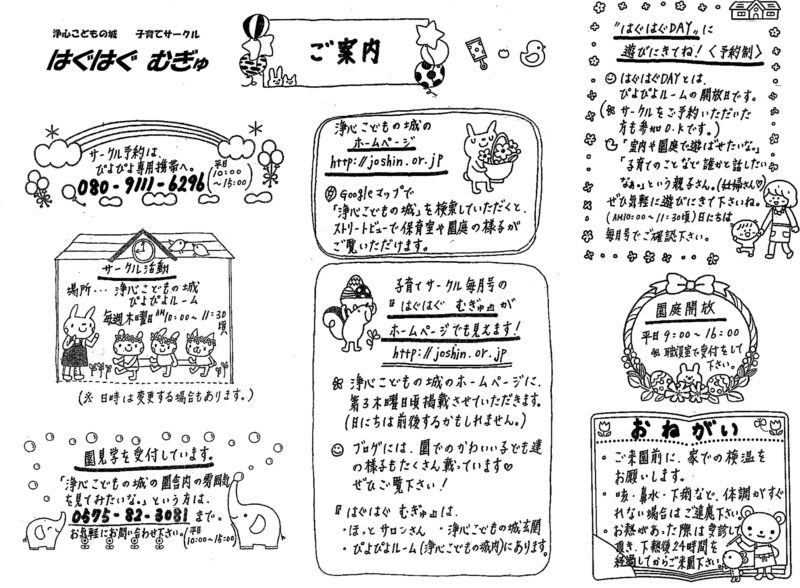 浄心こどもの城　子育てサークル
はぐはぐ むぎゅ
ご案内
サークル予約は
ぴよぴよ専用携帯へ。
080-9111-6296
(平日
10:00
〜15:00)
サークル活動
場所… 浄心こどもの城
ぴよぴよルーム
毎週木曜日AM10:00〜11:30
頃
(※ 日時は変更する場合もあります。)
園見学を受付しています。
「浄心こどもの城の園舎内の雰囲気
を見てみたいな。」という方は、
0575-82-3081まで。
お気軽にお問い合わせ下さい。(平日
10:00〜15:00)
浄心こどもの城の
ホームページ
http://joshin.or.jp
Googleマップで
「浄心こどもの城」を検索していただくと、
ストリートビューで保育室や園庭の様子が
ご覧いただけます。
子育てサークル毎月号の
『はぐはぐ むぎゅ』が
ホームページでも見えます!
http://joshin.or.jp
浄心こどもの城のホームページに、
第3木曜日頃掲載させていただきます。
(日にちは前後するかもしれません。)
ブログには、園でのかわいい子ども達
の様子もたくさん載っています♡
ぜひご覧下さい!
『はぐはぐ むぎゅ』は、
・ほっとサロンさん ・浄心こどもの城玄関
・ぴよぴよルーム(浄心こどもの城内)にあります。
"はぐはぐDAY"に
遊びにきてね!〈予約制〉
はぐはぐDAYとは、
ぴよぴよルームの開放日です。
(※ サークルをご予約いただいた
方も参加O.Kです。)
「室内や園庭で遊ばせたいな。」
「子育てのことなど誰かと話したい
なぁ。」という親子さん。(妊婦さん♡)
ぜひ気軽に遊びにきて下さいね。
(AM10:00〜11:30頃)日にちは
毎月号でご確認下さい。
園庭開放
平日 9:00〜16:00
※ 職員室で受付をして
下さい。
おねがい
・ご来園前に、家での検温を
お願いします。
・咳・鼻水・下痢など、体調がすぐ
れない場合はご遠慮下さい。
・お熱があった際は受診して
頂き、下熱後24時間を
経過してからご来園下さい。